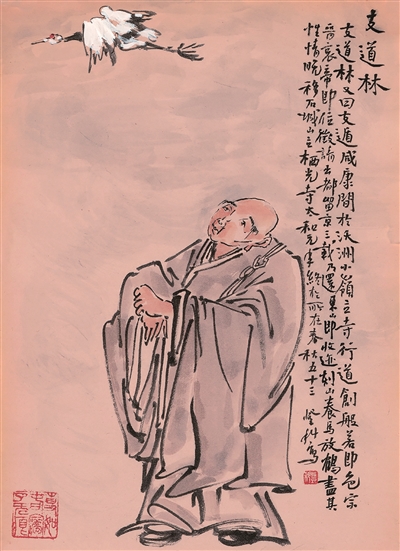 支道林
支道林又曰支遁咸康間於沃洲小嶺立寺行道創般若即色宗
晉哀帝即位徵請去都留京三載乃還東山即收迹剡山養馬放鶴盡其
性情晚移石城山立栖光寺太和元年終於所在春秋五十三 登科寫